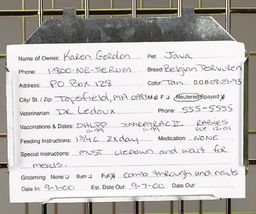 Name of Owner: Karen Gordon Pet: Java
Phone: 1-800-NE-SERUM Breed: Belgian Tervuren
Address: PO Box 128 Color: Tan D.O.B. 08-28-93
City/St./Zip: Topsfield, MA 01983 M F Neutered Spayed
Veterinarian: Dr. Ledoux Phone: 555-5555
Vaccinations & Dates: DHLPP INTRATRAC II RABIES
11-99 11-99 12-01
Feeding Instructions: 1 3/4 C 2x day Medication: NONE
Special Instructions: must liedown and wait for
meals.
Grooming: None Bath Full comb through and nails
Date In: 9-1-00 Est. Date Out: 9-7-00 Date Out: